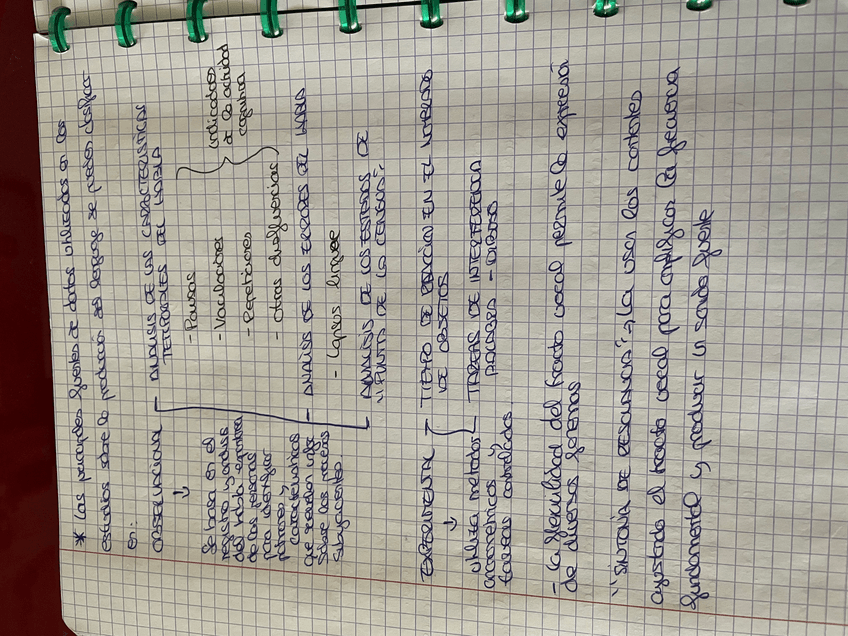 * Las principales fuentes de datos utilizados en los
estudios sobre la producción del lenguaje se pueden clasificar
en:
OBSERVACIONAL
↓
Se basa en el
registro y análisis
del habla espontánea
de las personas
para identificar
patrones y
características
que revelen info
sobre los procesos
subyacentes.
- ANÁLISIS DE LAS CARACTERÍSTICAS
TEMPORALES DEL HABLA
- Pausas
- Vacilaciones
- Repeticiones
- Otras disfluencias
indicadores
de la actividad
cognitiva
- ANÁLISIS DE LOS ERRORES DEL HABLA
- Lapsus linguae
ANÁLISIS DE LOS ESTADOS DE
"PUNTA DE LA LENGUA".
EXPERIMENTAL
↓
utiliza métodos
cronométricos y
tareas controladas
- TIEMPO DE REACCIÓN EN EL NOMBRADO
DE OBJETOS
- TAREAS DE INTERFERENCIA
PALABRA - DIBUJO
- La flexibilidad del tracto vocal permite la expresión
de diversos fonemas
"SINTONÍA DE RESONANCIA" → la usan los cantantes
ajustando el tracto vocal para amplificar la frecuencia
fundamental y producir un sonido fuerte